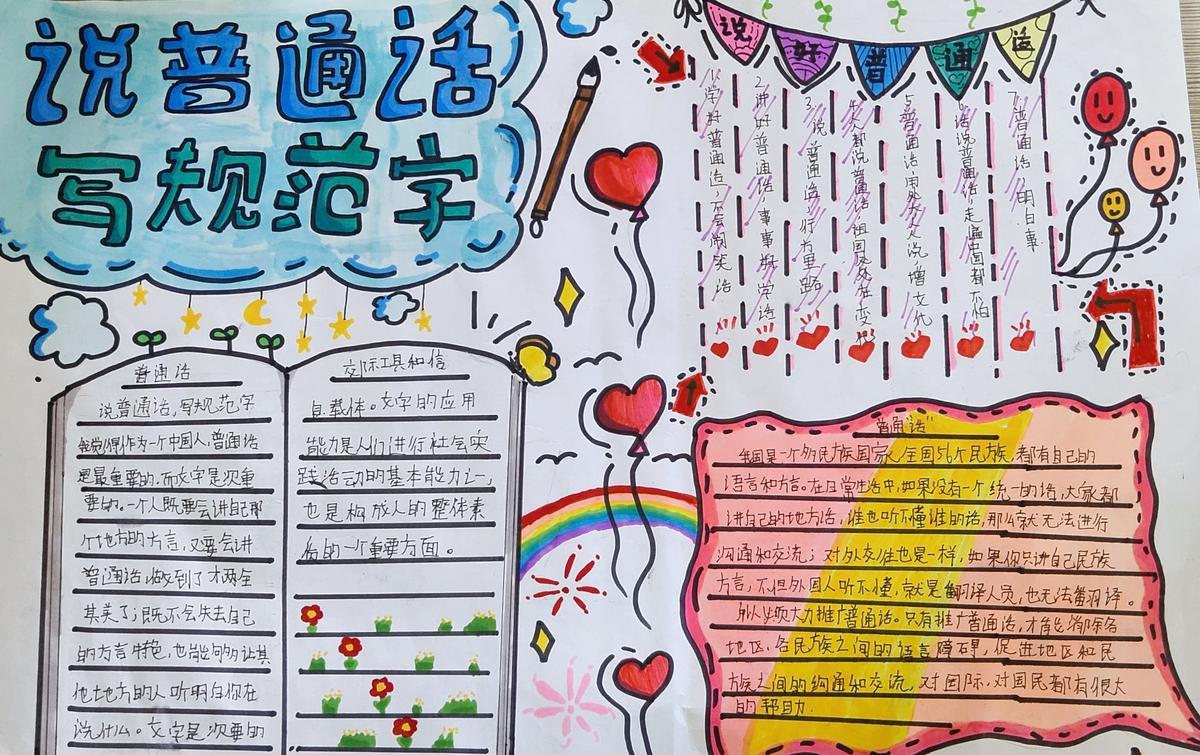 说普通话
写规范字
说好普通话
1. 学好普通话，不会闹笑话
2. 讲好普通话，事事好学话
3. 说普通话，行为里路
4. 人人都说普通话，祖国处处在变
5. 普通话用处大，人人说增文化
6. 话说普通话，走遍中国都不怕
7. 普通话，明白事
普通话
说普通话，写规范字
我觉得作为一个中国人，普通话
是最重要的，而文字是次重
要的。一个人既要会讲自己那
个地方的方言，又要会讲
普通话，做到了才两全
其美了；既不会失去自己
的方言特色，也能够让其
他地方的人听明白你在
说什么。文字是次要的
交际工具和信
息载体。文字的应用
能力是人们进行社会实
践活动的基本能力之一，
也是构成人的整体素
质的一个重要方面。
普通"话"
我国是一个多民族国家，全国56个民族，都有自己的
语言和方言。在日常生活中，如果没有一个统一的话，大家都
讲自己的地方话，谁也听不懂谁的话，那么就无法进行
沟通和交流；对外交往也是一样，如果你只讲自己民族
方言，不但外国人听不懂，就是翻译人员，也无法翻译。
所以必须大力推广普通话。只有推广普通话，才能消除各
地区、各民族之间的语言障碍，促进地区和民
族之间的沟通和交流，对国际、对国民都有很大
的帮助.